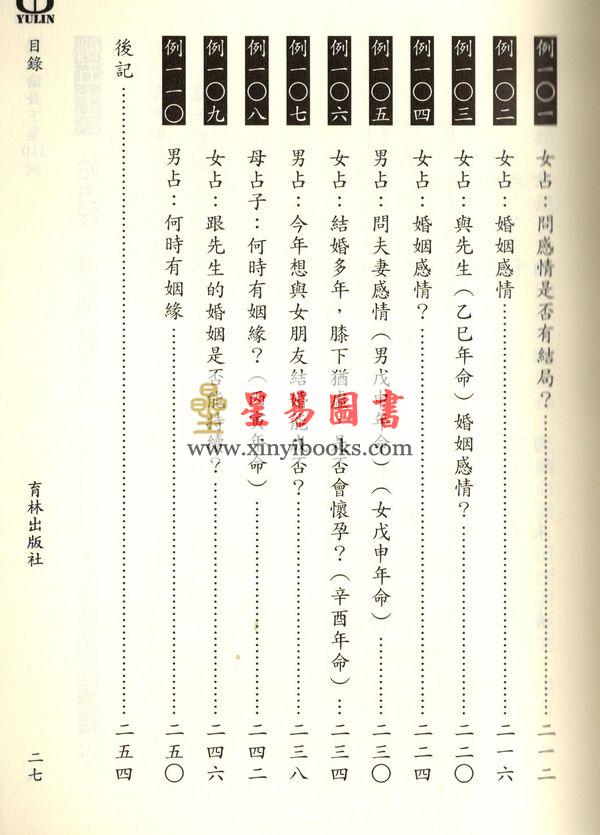 例一〇一 女占：問感情是否有結局？⋯⋯二一二
例一〇二 女占：婚姻感情⋯⋯二一六
例一〇三 女占：與先生（乙巳年命）婚姻感情？⋯⋯二二〇
例一〇四 女占：婚姻感情？⋯⋯二二四
例一〇五 男占：問夫妻感情（男戊申年命）（女戊申年命）⋯⋯二三〇
例一〇六 女占：結婚多年，膝下猶虛，是否會懷孕？（辛酉年命）⋯⋯二三四
例一〇七 男占：今年想與女朋友結婚能成否？⋯⋯二三八
例一〇八 母占子：何時有姻緣？（丙寅年命）⋯⋯二四二
例一〇九 女占：跟先生的婚姻是否能持續？⋯⋯二四六
例一一〇 男占：何時有姻緣⋯⋯二五〇
後記⋯⋯二五四
YULIN
目錄
育林出版社
二七
星易圖書
www.xinyibooks.com